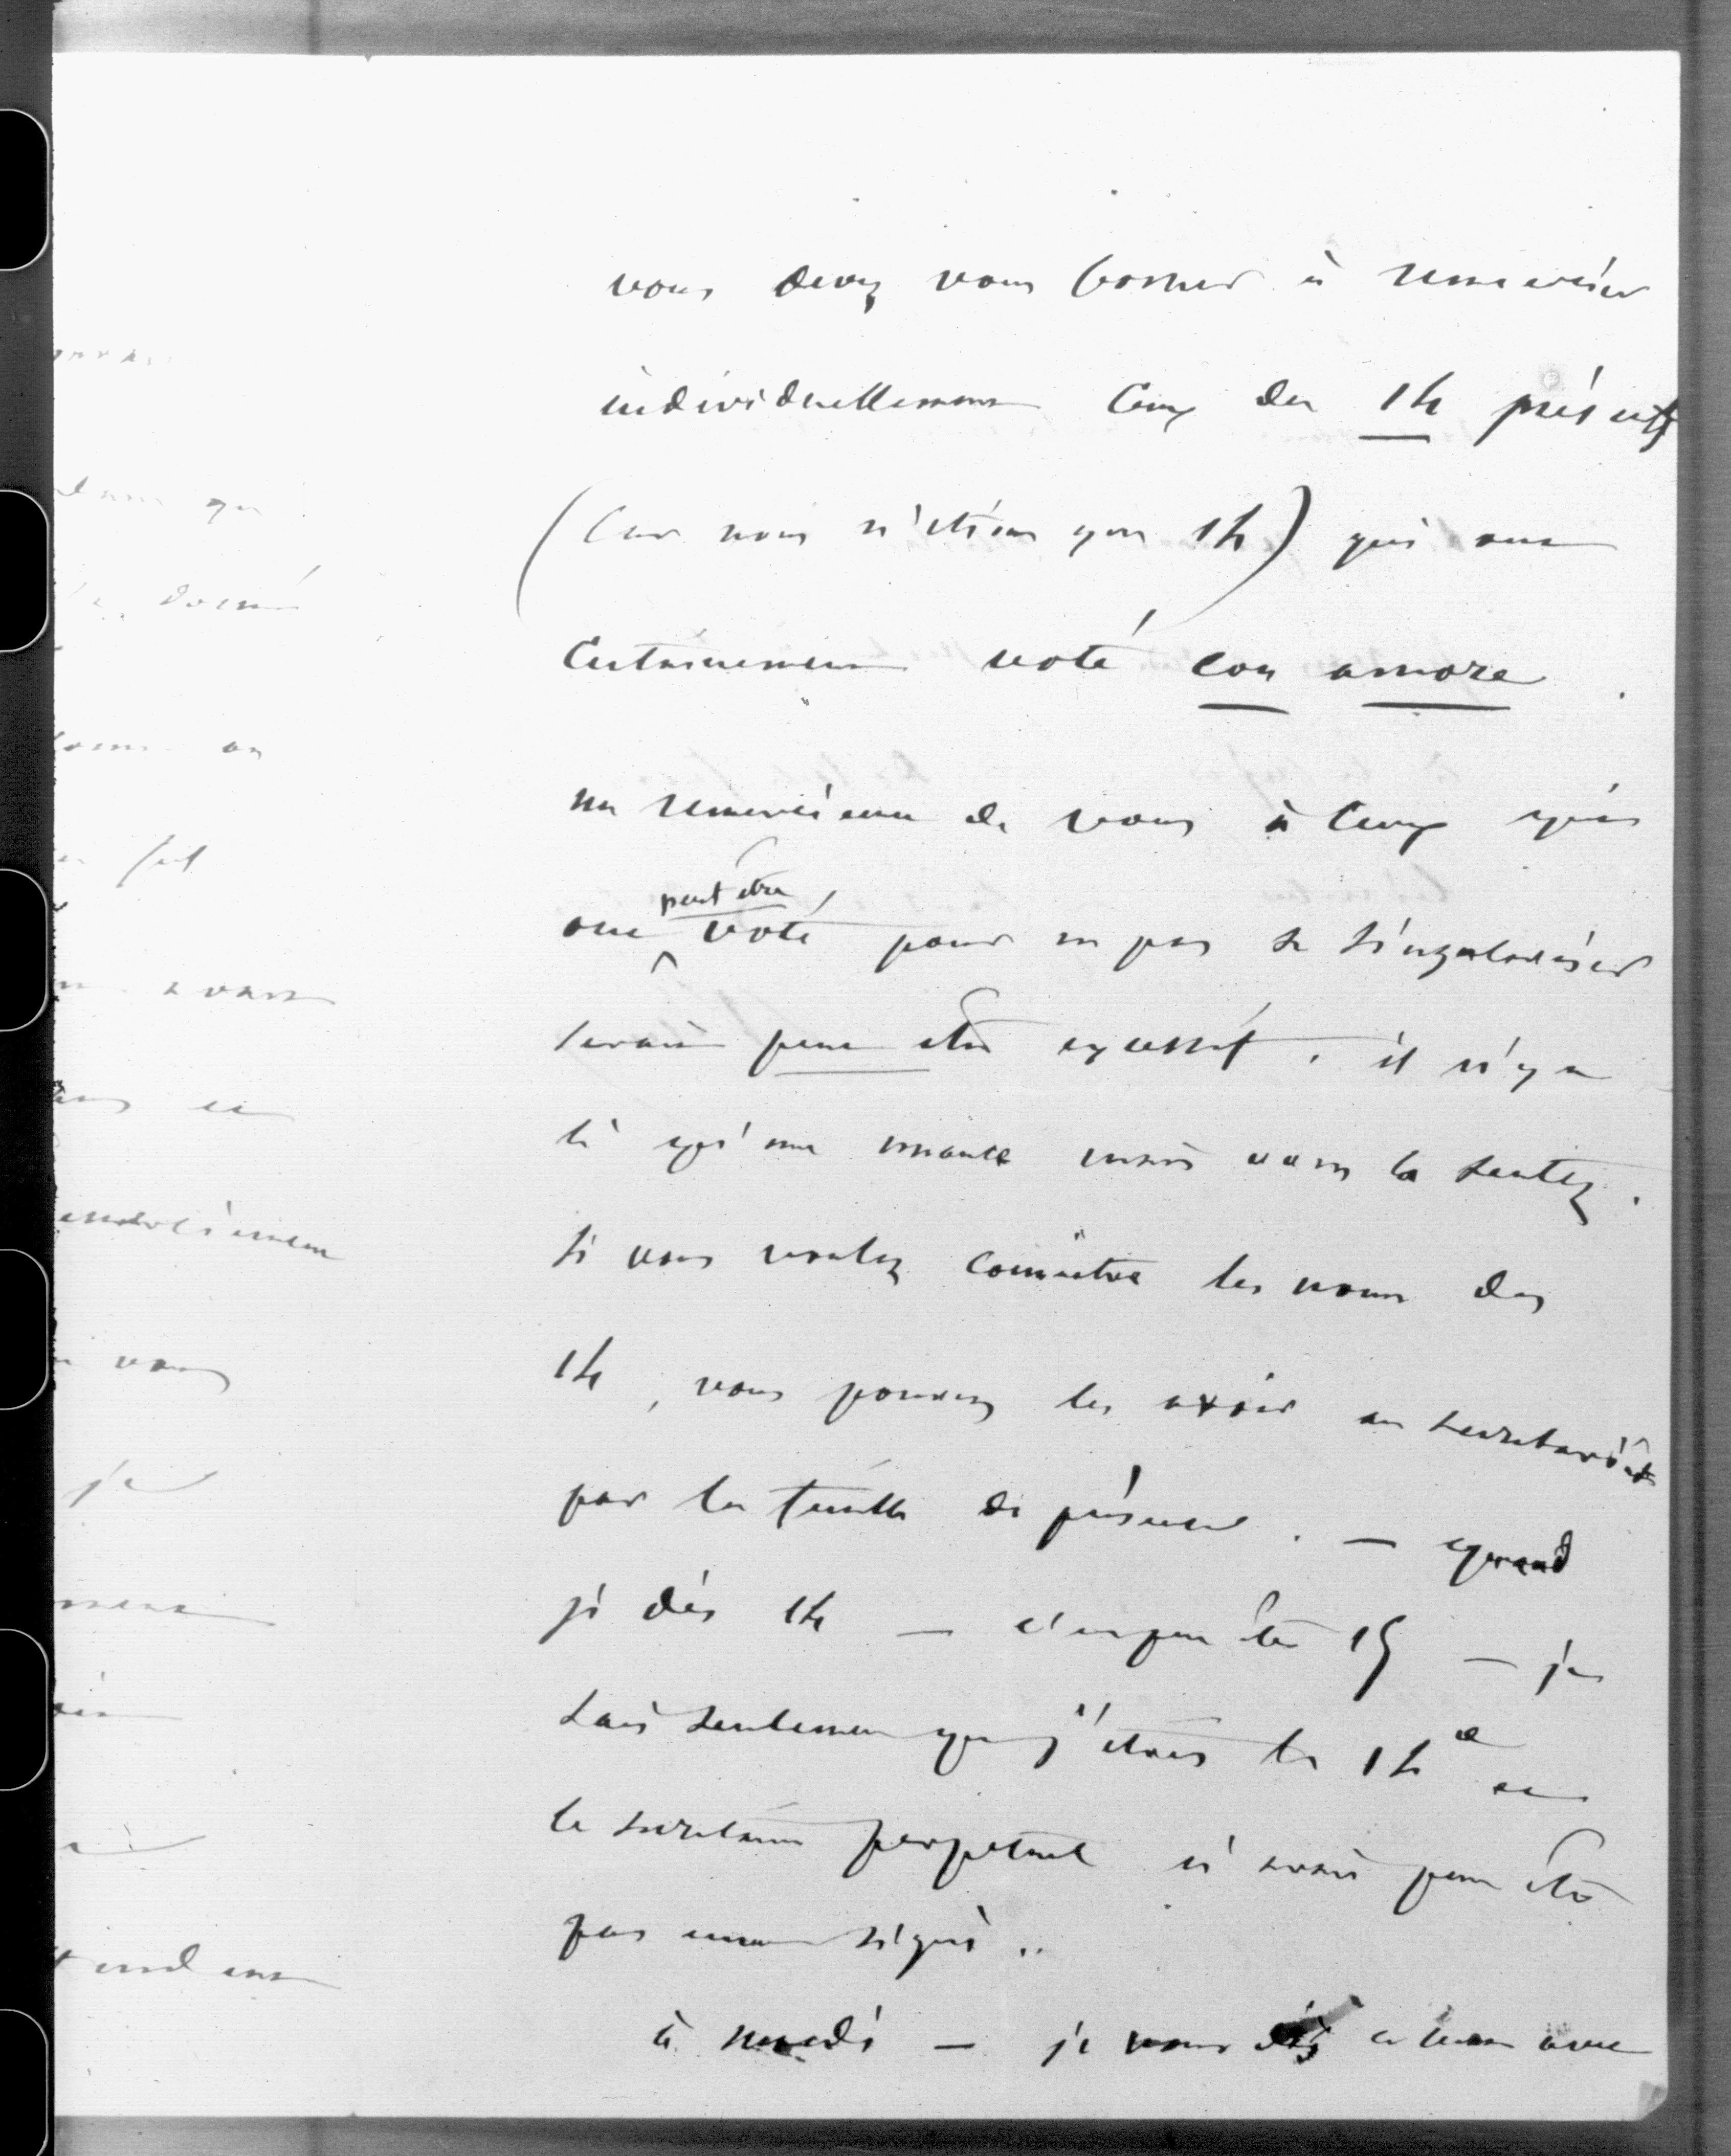 vous devez vous borner à remercier
individuellement ceux des 14 présents
(car nous n'étions que 14) qui ont
certainement voté con amore.
un remerciement de vous à ceux qui
ont peut être voté pour ne pas se singulariser
serait peut être excessif. il n'y a
là qu'une nuance mais vous la sentez.
si vous voulez connaître les noms des
14, vous pouvez les avoir au secrétariat
par la feuille de présence. — quand
je dis 14 — c'est peut être 15 — je
sais seulement que j'étais le 14e et
le secrétaire perpétuel n'avait peut être
pas encore signé..
à mardi — je vous dis avec
donné
on
fut
avant
vous
je